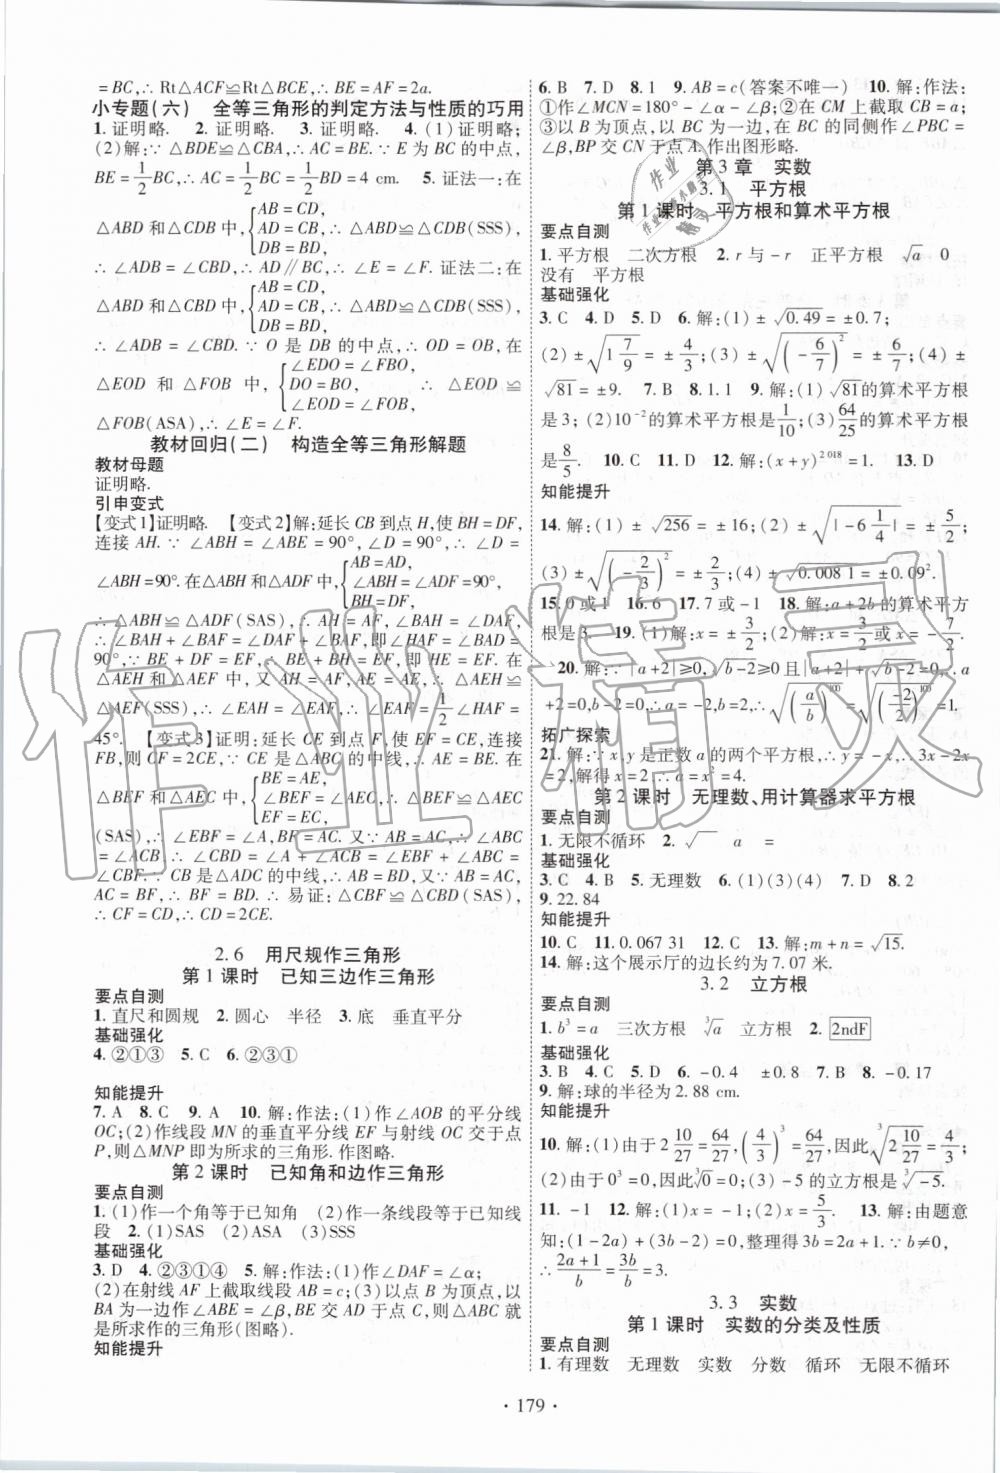 =BC,∴Rt△ACF≌Rt△BCE,∴BE=AF=2a.
小专题(六) 全等三角形的判定方法与性质的巧用
1. 证明略. 2. 证明略. 3. 证明略. 4. (1)证明略;
(2)解:∵△BDE≌△CBA,∴AC=BE.∵E为BC的中点,
BE=1/2BC,∴AC=1/2BC=1/2BD=4 cm. 5. 证法一:在
△ABD和△CDB中,{AB=CD, AD=CB, DB=BD, ∴△ABD≌△CDB(SSS),
∴∠ADB=∠CBD,∴AD∥BC,∴∠E=∠F. 证法二:在
△ABD和△CDB中,{AB=CD, AD=CB, DB=BD, ∴△ABD≌△CDB(SSS),
∴∠ADB=∠CBD.∵O是DB的中点,∴OD=OB,在
△EOD和△FOB中,{∠EDO=∠FBO, DO=BO, ∠EOD=∠FOB, ∴△EOD≌
△FOB(ASA),∴∠E=∠F.
教材回归(二) 构造全等三角形解题
教材母题
证明略.
引申变式
【变式1】证明略. 【变式2】解:延长CB到点H,使BH=DF,
连接AH.∵∠ABC=∠ABE=90°,∠D=90°,∴∠D=
∠ABH=90°.在△ABH和△ADF中,{AB=AD, ∠ABH=∠ADF=90°, BH=DF,
∴△ABH≌△ADF(SAS),∴AH=AF,∠BAH=∠DAF,
∴∠BAH+∠BAF=∠DAF+∠BAF,即∠HAF=∠BAD=
90°,∵BE+DF=EF,∴BE+BH=EF,即HE=EF.在
△AEH和△AEF中,又AH=AF,AE=AE,∴△AEH≌
△AEF(SSS),∴∠EAH=∠EAF,∴∠EAF=1/2∠HAF=
45°. 【变式3】证明:延长CE到点F,使EF=CE,连接
FB,则CF=2CE,∵CE是△ABC的中线,∴AE=BE.在
△BEF和△AEC中,{BE=AE, ∠BEF=∠AEC, EF=EC, ∴△BEF≌△AEC
(SAS),∴∠EBF=∠A,BF=AC.又∵AB=AC,∴∠ABC
=∠ACB,∴∠CBD=∠A+∠ACB=∠EBF+∠ABC=
∠CBF.∵CB是△ADC的中线,∴AB=BD,又∵AB=AC,
AC=BF,∴BF=BD.∴易证:△CBF≌△CBD(SAS),
∴CF=CD,∴CD=2CE.
2.6 用尺规作三角形
第1课时 已知三边作三角形
要点自测
1. 直尺和圆规 2. 圆心 半径 3. 底 垂直平分
基础强化
4. ②①③ 5. C 6. ②③①
知能提升
7. A 8. C 9. A 10. 解:作法:(1)作∠AOB的平分线
OC;(2)作线段MN的垂直平分线EF与射线OC交于点
P,则△MNP即为所求的三角形. 作图略.
第2课时 已知角和边作三角形
要点自测
1. (1)作一个角等于已知角 (2)作一条线段等于已知线
段 2. (1)SAS (2)ASA (3)SSS
基础强化
3. D 4. ②③①④ 5. 解:作法:(1)作∠DAF=∠α;
(2)在射线AF上截取线段AB=c;(3)以点B为顶点,以
BA为一边作∠ABE=∠β,BE交AD于点C,则△ABC就
是所求作的三角形(图略).
知能提升
6. B 7. D 8. 1 9. AB=c(答案不唯一) 10. 解:作法:
①作∠MCN=180°-∠α-∠β;②在CM上截取CB=a;
③以B为顶点,以BC为一边,在BC的同侧作∠PBC=
∠β,BP交CN于点A. 作出图形略.
第3章 实数
3.1 平方根
第1课时 平方根和算术平方根
要点自测
1. 平方根 二次方根 2. r与-r 正平方根 √a 0
没有 平方根
基础强化
3. C 4. D 5. D 6. 解:(1)±√0.49=±0.7;
(2)±√(1 7/9)=±4/3;(3)±√((-6/7)²)=±6/7;(4)±
√81=±9. 7. B 8. 1.1 9. 解:(1)√81的算术平方根
是3;(2)10⁻²的算术平方根是1/10;(3)64/25的算术平方根
是8/5. 10. C 11. D 12. 解:(x+y)²⁰¹⁸=1. 13. D
知能提升
14. 解:(1)±√256=±16;(2)±√(|-6 1/4|)=±5/2;
(3)±√((-2/3)²)=±2/3;(4)±√0.008 1=±0.09².
15. 0或1 16. 6 17. 7或-1 18. 解:a+2b的算术平方
根是3. 19. (1)解:x=±3/5;(2)解:x=3/2或x=-7/2.
20. 解:∵|a+2|≥0,√(b-2)≥0且|a+2|+√(b-2)=0,∴a
+2=0,b-2=0,∴a=-2,b=2,∴√((a/b)¹⁰⁰)=√((-2/2)¹⁰⁰)=1.
拓广探索
21. 解:∵x,y是正数a的两个平方根,∴y=-x,∴3x-2x
=2,解得x=2,∴a=x²=4.
第2课时 无理数、用计算器求平方根
要点自测
1. 无限不循环 2. √ a =
基础强化
3. C 4. B 5. 无理数 6. (1)(3)(4) 7. D 8. 2
9. 22.84
知能提升
10. C 11. 0.067 31 12. D 13. 解:m+n=√15.
14. 解:这个展示厅的边长约为7.07米.
3.2 立方根
要点自测
1. b³=a 三次方根 ³√a 立方根 2. 2ndF
基础强化
3. B 4. C 5. D 6. -0.4 ±0.8 7. B 8. -0.17
9. 解:球的半径为2.88 cm.
知能提升
10. 解:(1)由于2 10/27=64/27,(4/3)³=64/27,因此³√(2 10/27)=4/3;
(2)由于0³=0,因此³√0=0;(3)-5的立方根是³√-5.
11. -1 12. 解:(1)x=-1;(2)x=5/3. 13. 解:由题意
知:(1-2a)+(3b-2)=0,整理得3b=2a+1.∵b≠0,
∴(2a+1)/b=3b/b=3.
3.3 实数
第1课时 实数的分类及性质
要点自测
1. 有理数 无理数 实数 分数 循环 无限不循环
· 179 ·
作业精灵